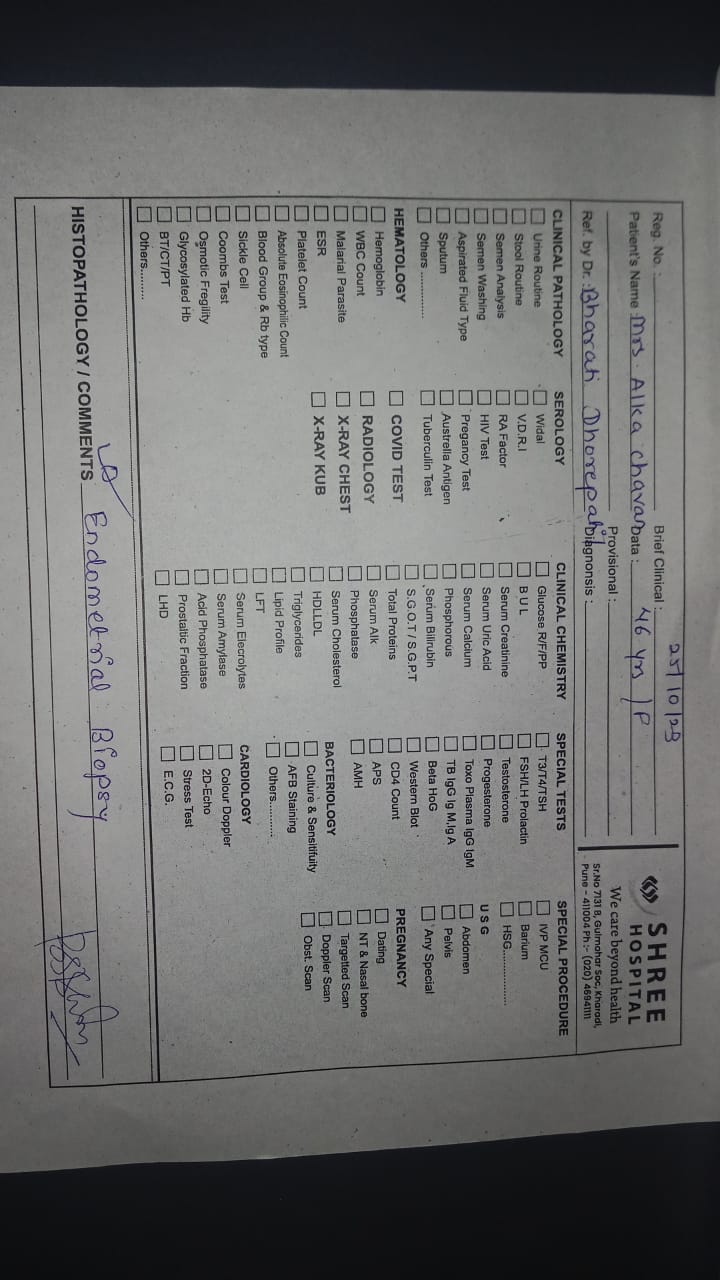 25/10/23
SHREE
HOSPITAL
We care beyond health
Sr.No 7131 B, Gulmohar Soc, Kharadi,
Pune - 411004 Ph :- (020) 46941111
Reg. No : Brief Clinical :
Patient's Name : Mrs. Alka chavan Data : 46 yrs /P
Provisional :
Ref. by Dr. : Bharati Dhorepatil Diagnonsis :
CLINICAL PATHOLOGY
Urine Routine
Stool Routine
Semen Analysis
Semen Washing
Aspirated Fluid Type
Sputum
Others ..............
HEMATOLOGY
Hemoglobin
WBC Count
Malarial Parasite
ESR
Platelet Count
Absolute Eosinophilic Count
Blood Group & Rb type
Sickle Cell
Coombs Test
Osmotic Fregility
Glycosylated Hb
BT/CT/PT
Others.........
SEROLOGY
Widal
V.D.R.I
RA Factor
HIV Test
Pregancy Test
Australia Antigen
Tuberculin Test
COVID TEST
RADIOLOGY
X-RAY CHEST
X-RAY KUB
CLINICAL CHEMISTRY
Glucose R/F/PP
B U L
Serum Creatinine
Serum Uric Acid
Serum Calcium
Phosphorous
Serum Bilirubin
S.G.O.T / S.G.P.T
Total Proteins
Serum Alk
Phosphatase
Serum Cholesterol
HDLLDL
Triglycerides
Lipid Profile
LFT
Serum Elecrolytes
Serum Amylase
Acid Phosphatase
Prostaltic Fraction
LHD
SPECIAL TESTS
T3/T4/TSH
FSH/LH Prolactin
Testosterone
Progesterone
Toxo Plasma IgG IgM
TB IgG Ig M,Ig A
Beta HoG
Western Blot
CD4 Count
APS
AMH
BACTERIOLOGY
Culture & Sensitifuity
AFB Staining
Others...........
CARDIOLOGY
Colour Doppler
2D-Echo
Stress Test
E.C.G.
SPECIAL PROCEDURE
IVP MCU
Barium
HSG.................
U S G
Abdomen
Pelvis
Any Special
PREGNANCY
Dating
NT & Nasal bone
Targetted Scan
Doppler Scan
Obst. Scan
HISTOPATHOLOGY / COMMENTS
Endometrial Biopsy